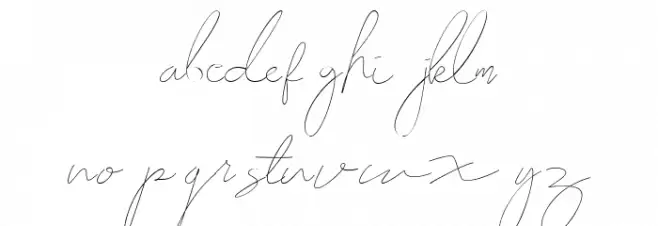 abcdef ghi jklm
no pqrstuvwx yz